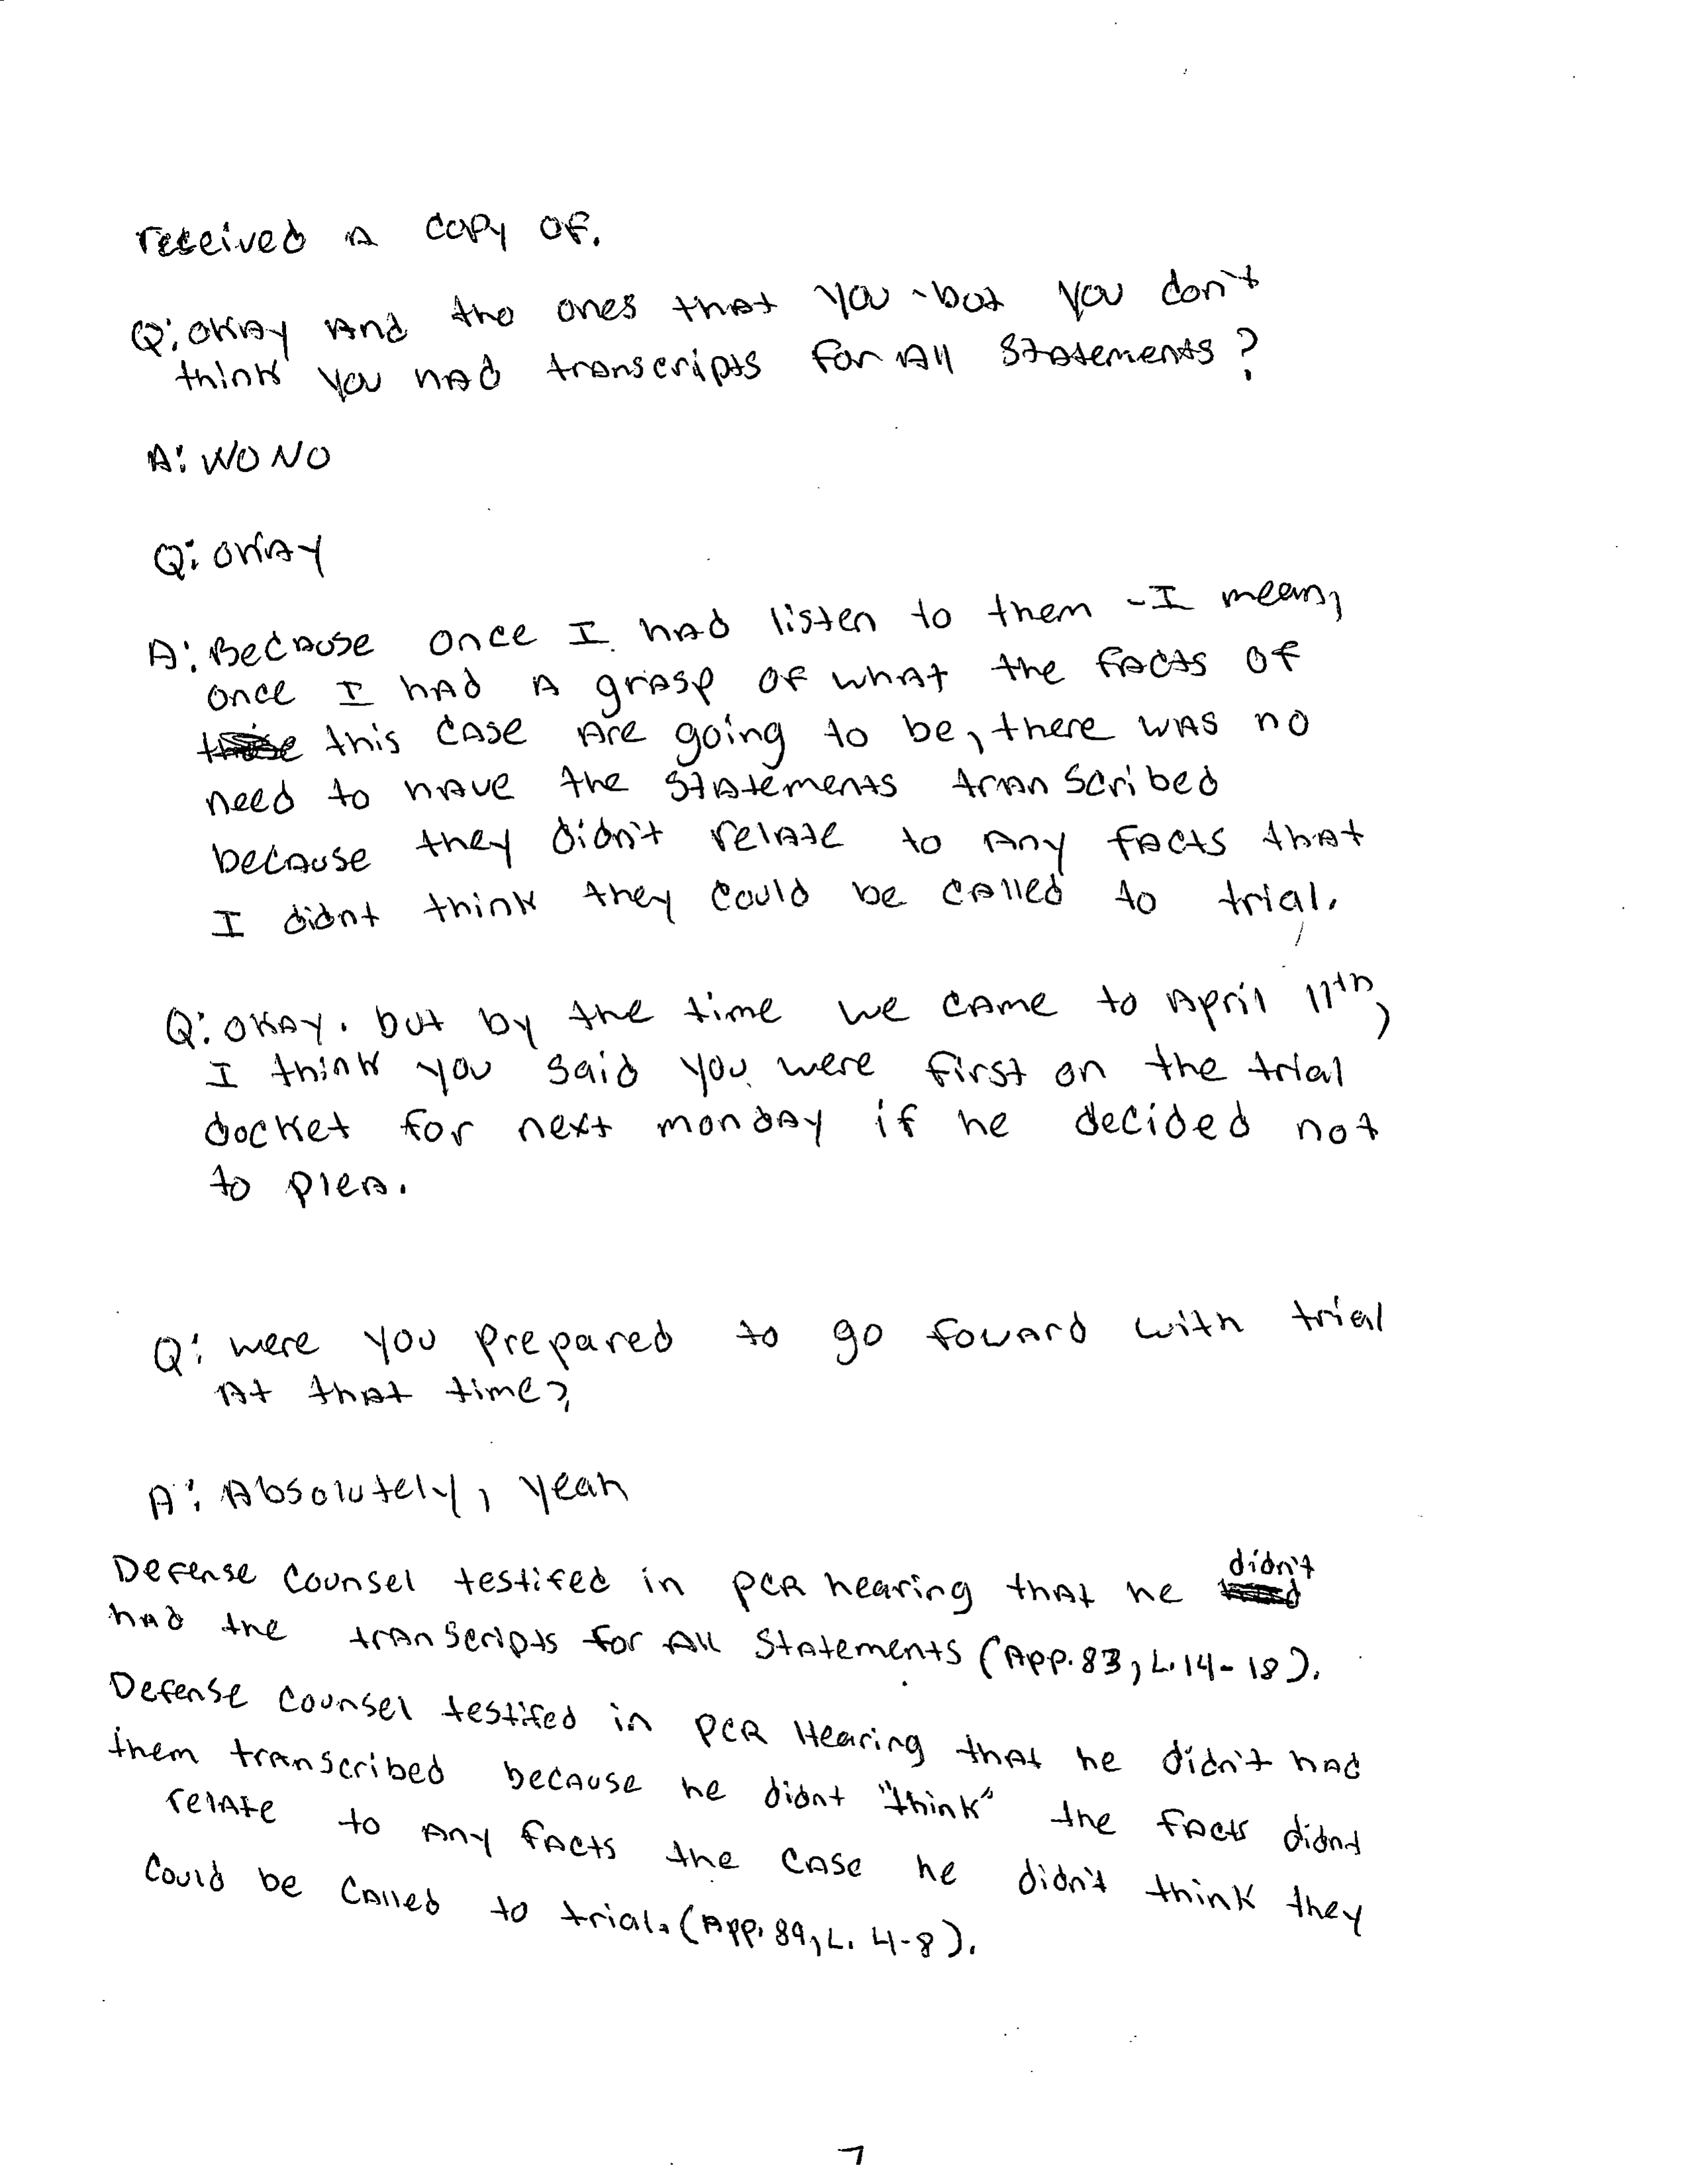 received A copy of.
Q: okay And the ones that you - but you don't
think you had transcripts for All statements?
A: WO NO
Q: okay
A: Because once I had listen to them - I mean,
once I had A grasp of what the facts of
this case Are going to be, there was no
need to have the statements transcribed
because they didn't relate to Any facts that
I didnt think they could be called to trial.
Q: okay. but by the time we came to April 11th,
I think you said you were first on the trial
docket for next monday if he decided not
to plea.
Q: were you prepared to go foward with trial
At that time?
A: Absolutely, yeah
didn't
Defense counsel testifed in PCR hearing that he
had the transcripts for All statements (App. 83, L. 14-18).
Defense counsel testifed in PCR Hearing that he didn't had
them transcribed because he didnt "think" the facts didnt
relate to Any facts the case he didn't think they
could be called to trial. (App. 89, L. 4-8).
7